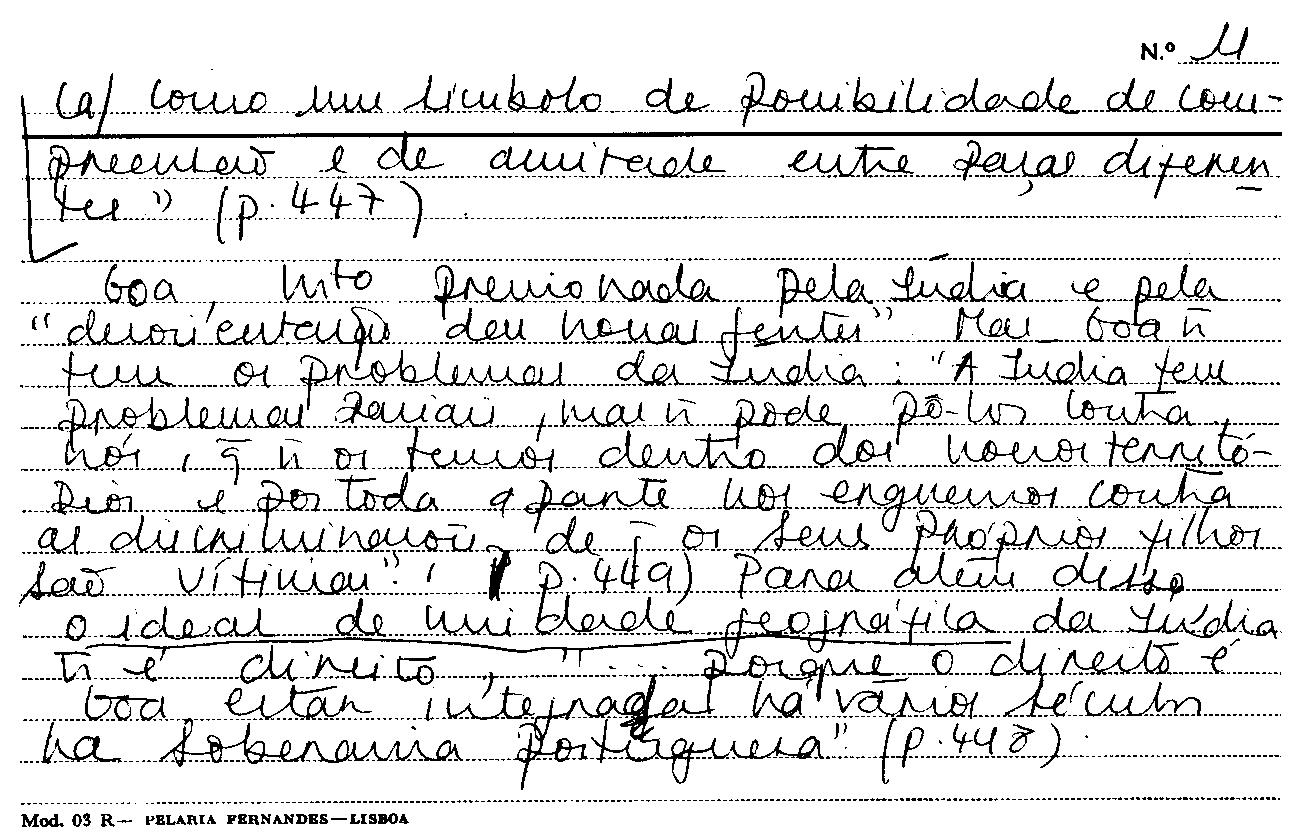 N.º 11
ca) como um símbolo de possibilidade de com-
preensão e de amizade entre raças diferen
tes" (p. 447).
Goa, hoje pressionada pela Índia e pela
"desorientação deu novas gentes" Mas Goa ñ
tem os problemas da Índia: "A India tem
problemas raciais, mas ñ pode pô-los contra
nós, q̃ ñ os temos dentro dos nossos territó-
rios e por toda a parte nos erguemos contra
as discriminações, de q̃ os seus próprios filhos
são vítimas". (p. 449) Para além disso
o ideal de unidade geográfica da Índia
ñ é direito, "... porque o direito é
Goa estar integrada há vários séculos
na soberania portuguesa". (p. 448).
Mod. 03 R— PELARIA FERNANDES—LISBOA